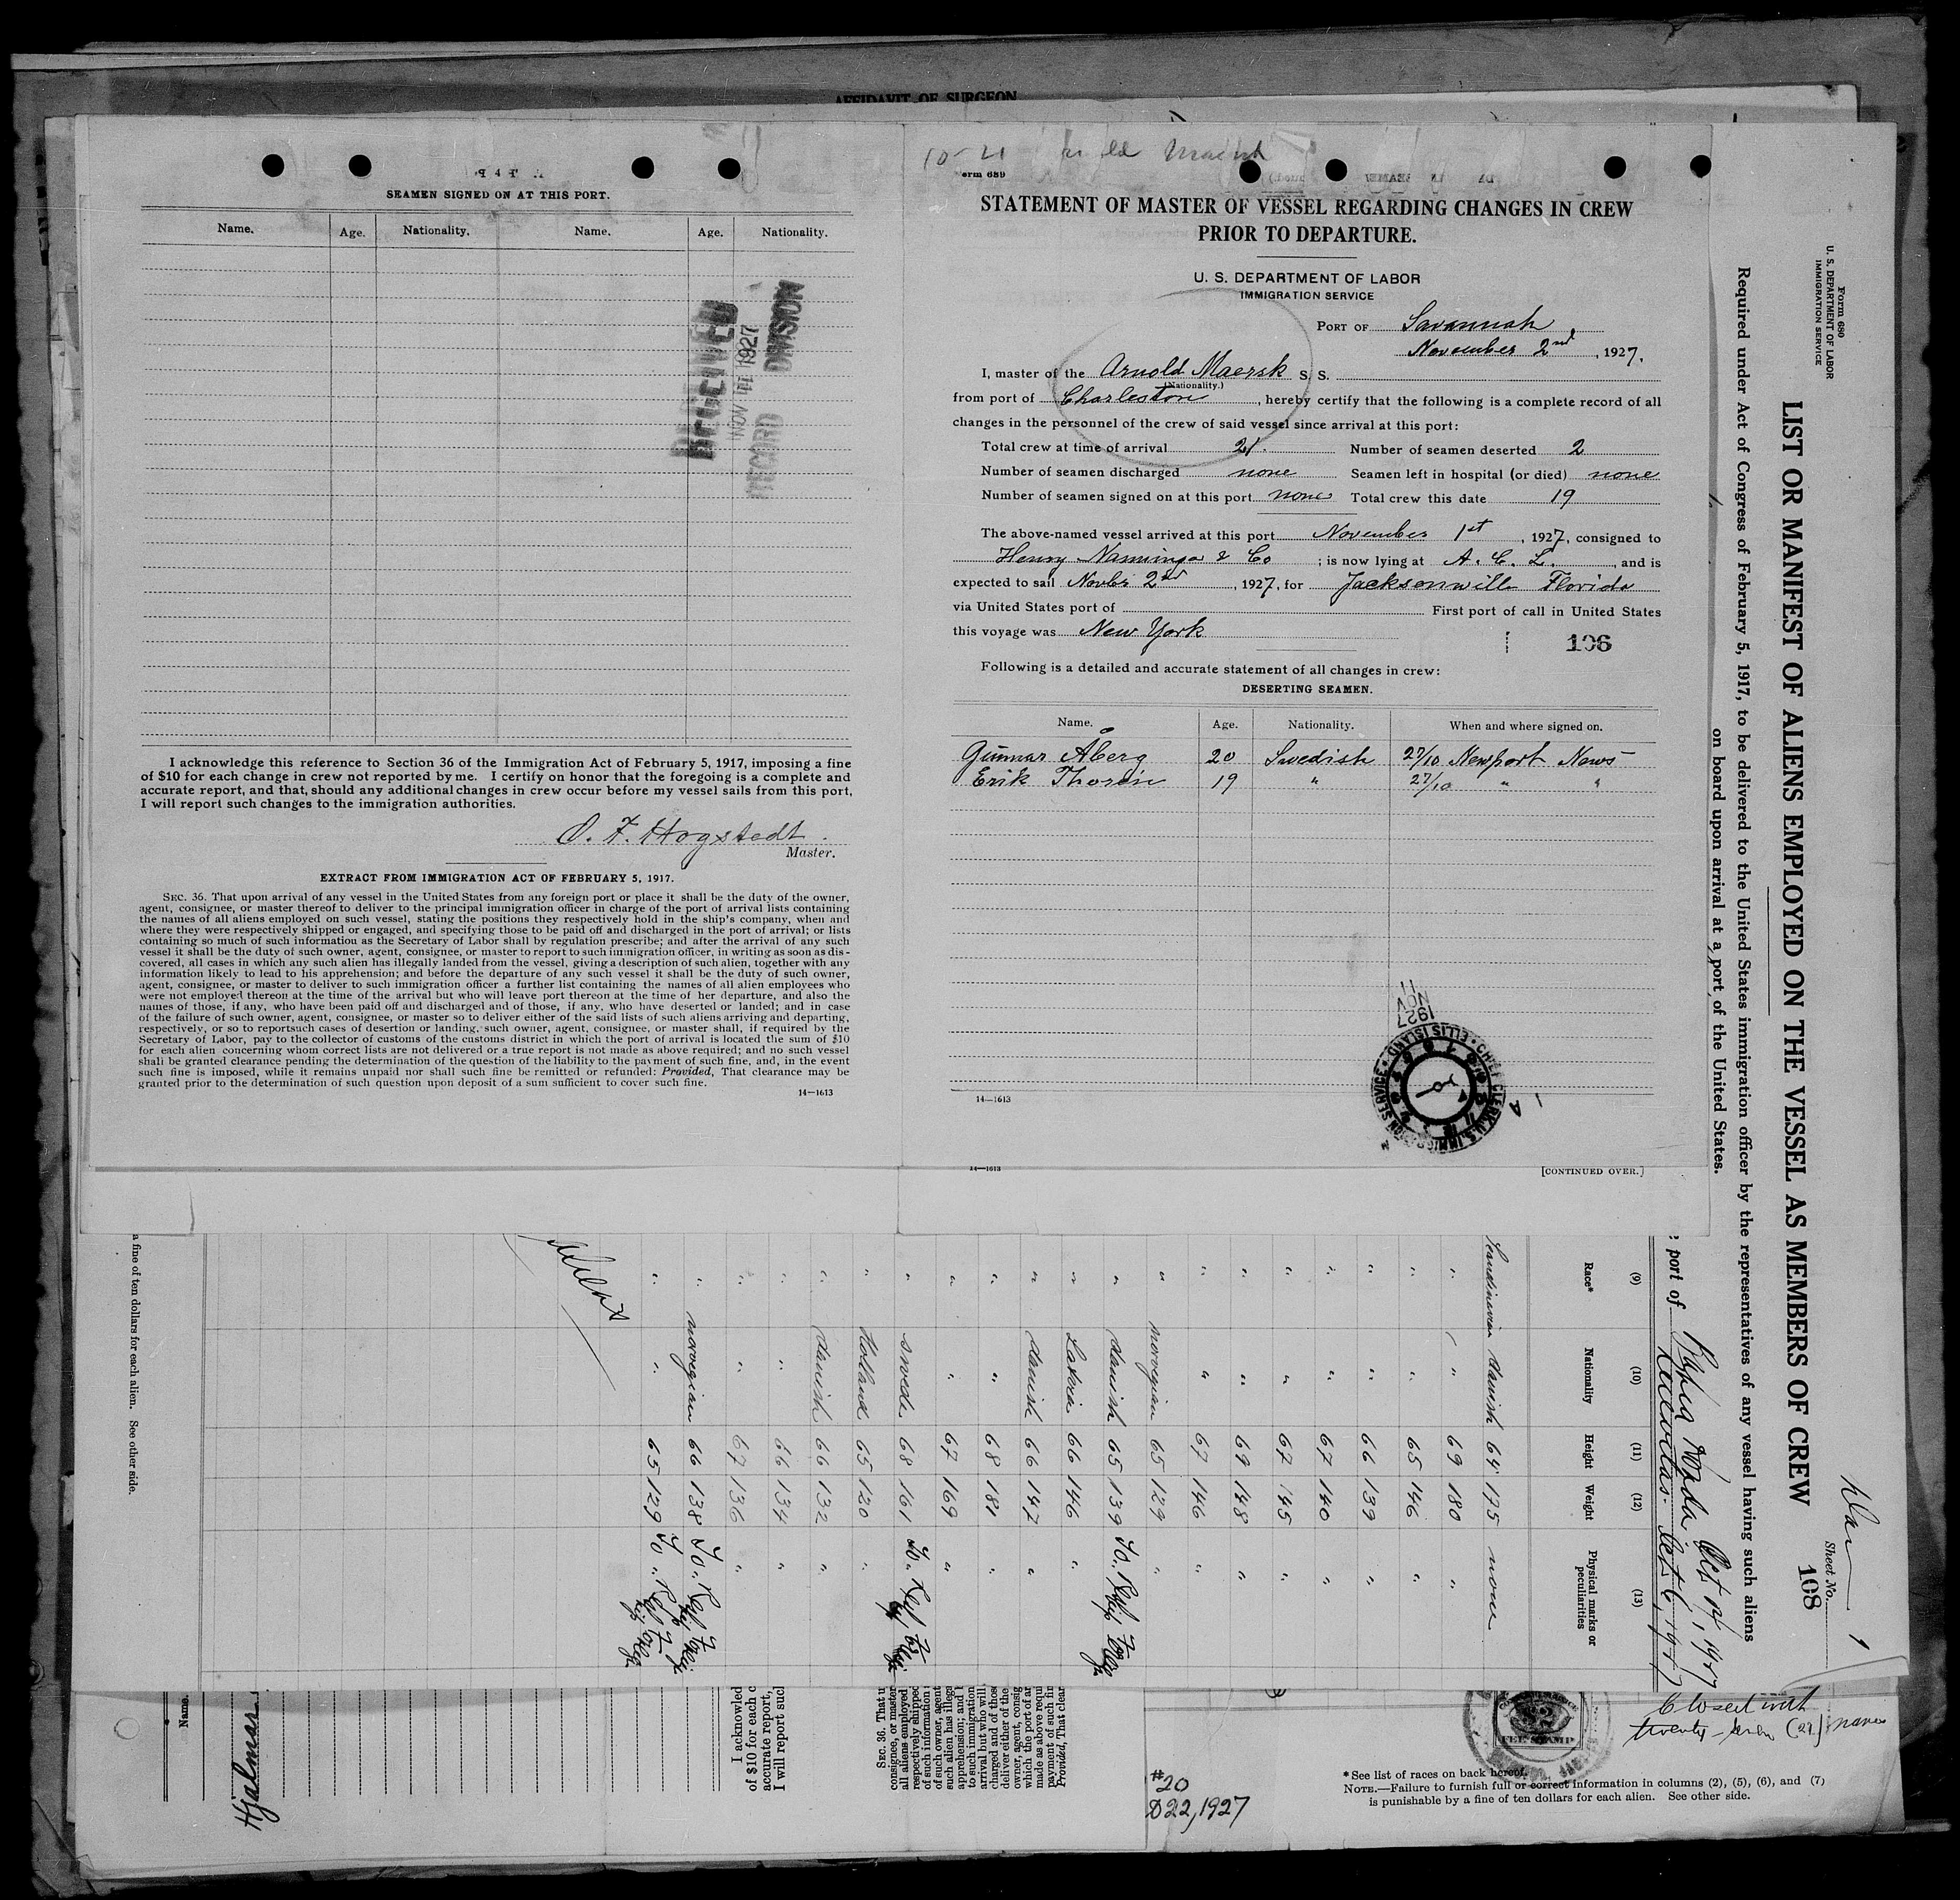 AFFIDAVIT OF SURGEON
SEAMEN SIGNED ON AT THIS PORT.
Name. Age. Nationality. Name. Age. Nationality.
RECEIVED
NOV 11 1927
RECORD DIVISION
I acknowledge this reference to Section 36 of the Immigration Act of February 5, 1917, imposing a fine
of $10 for each change in crew not reported by me. I certify on honor that the foregoing is a complete and
accurate report, and that, should any additional changes in crew occur before my vessel sails from this port,
I will report such changes to the immigration authorities.
O. F. Hogstedt
Master.
EXTRACT FROM IMMIGRATION ACT OF FEBRUARY 5, 1917.
SEC. 36. That upon arrival of any vessel in the United States from any foreign port or place it shall be the duty of the owner,
agent, consignee, or master thereof to deliver to the principal immigration officer in charge of the port of arrival lists containing
the names of all aliens employed on such vessel, stating the positions they respectively hold in the ship's company, when and
where they were respectively shipped or engaged, and specifying those to be paid off and discharged in the port of arrival; or lists
containing so much of such information as the Secretary of Labor shall by regulation prescribe; and after the arrival of any such
vessel it shall be the duty of such owner, agent, consignee, or master to report to such immigration officer, in writing as soon as dis-
covered, all cases in which any such alien has illegally landed from the vessel, giving a description of such alien, together with any
information likely to lead to his apprehension; and before the departure of any such vessel it shall be the duty of such owner,
agent, consignee, or master to deliver to such immigration officer a further list containing the names of all alien employees who
were not employed thereon at the time of the arrival but who will leave port thereon at the time of her departure, and also the
names of those, if any, who have been paid off and discharged and of those, if any, who have deserted or landed; and in case
of the failure of such owner, agent, consignee, or master so to deliver either of the said lists of such aliens arriving and departing,
respectively, or so to reportsuch cases of desertion or landing, such owner, agent, consignee, or master shall, if required by the
Secretary of Labor, pay to the collector of customs of the customs district in which the port of arrival is located the sum of $10
for each alien concerning whom correct lists are not delivered or a true report is not made as above required; and no such vessel
shall be granted clearance pending the determination of the question of the liability to the payment of such fine, and, in the event
such fine is imposed, while it remains unpaid nor shall such fine be remitted or refunded: Provided, That clearance may be
granted prior to the determination of such question upon deposit of a sum sufficient to cover such fine.
14—1613
orm 689
STATEMENT OF MASTER OF VESSEL REGARDING CHANGES IN CREW
PRIOR TO DEPARTURE.
U. S. DEPARTMENT OF LABOR
IMMIGRATION SERVICE
PORT OF Savannah,
November 2nd, 1927.
I, master of the Arnold Maersk S. S.
(Nationality.)
from port of Charleston, hereby certify that the following is a complete record of all
changes in the personnel of the crew of said vessel since arrival at this port:
Total crew at time of arrival 21. Number of seamen deserted 2
Number of seamen discharged none Seamen left in hospital (or died) none
Number of seamen signed on at this port none Total crew this date 19
The above-named vessel arrived at this port November 1st, 1927, consigned to
Henry Nanninga & Co; is now lying at A. C. L., and is
expected to sail Novbr 2nd, 1927, for Jacksonwill Florida
via United States port of First port of call in United States
this voyage was New York
106
Following is a detailed and accurate statement of all changes in crew:
DESERTING SEAMEN.
Name. Age. Nationality. When and where signed on.
Gunnar Åberg 20 Swedish 27/10 Newport News
Erik Thorén 19 " 27/10 " "
11
NOV
1927
CHIEF CLERK U.S. IMMIGRATION SERVICE • ELLIS ISLAND
14—1613
14—1613
[CONTINUED OVER.]
Form 680
U. S. DEPARTMENT OF LABOR
IMMIGRATION SERVICE
Sheet No.
LIST OR MANIFEST OF ALIENS EMPLOYED ON THE VESSEL AS MEMBERS OF CREW 108
Required under Act of Congress of February 5, 1917, to be delivered to the United States immigration officer by the representatives of any vessel having such aliens
on board upon arrival at a port of the United States.
port of
(9) (10) (11) (12) (13)
Race* Nationality Height Weight Physical marks or peculiarities
Scandinavian danish 64 175 none
" " 69 180 "
" " 65 146 "
" " 66 139 "
" " 67 140 "
" " 67 145 "
" " 69 148 "
" " 67 146 "
" norvegian 65 129 "
" danish 65 139
" 66 146 "
" danish 66 147 "
" " 68 181 "
" " 67 169 "
" swede 68 161
" Holland 65 120 "
" danish 66 132 "
" " 66 134 "
" " 67 136 "
" norvegian 66 138
" " 65 129
a fine of ten dollars for each alien. See other side.
Name.
Hjalmar
I acknowled
of $10 for each c
accurate report,
I will report suc
SEC. 36. That u
consignee, or master
all aliens employed
respectively shipped
of such information
of such owner, agent
such alien has illega
apprehension; and b
to such immigration
arrival but who will
charged and of those
deliver either of the
owner, agent, consig
which the port of ar
made as above requi
payment of such fin
Provided, That clear
#20
D22, 1927
$2
FEE STAMP
Closed with
twenty-seven (27) names
*See list of races on back hereof.
NOTE.—Failure to furnish full or correct information in columns (2), (5), (6), and (7)
is punishable by a fine of ten dollars for each alien. See other side.